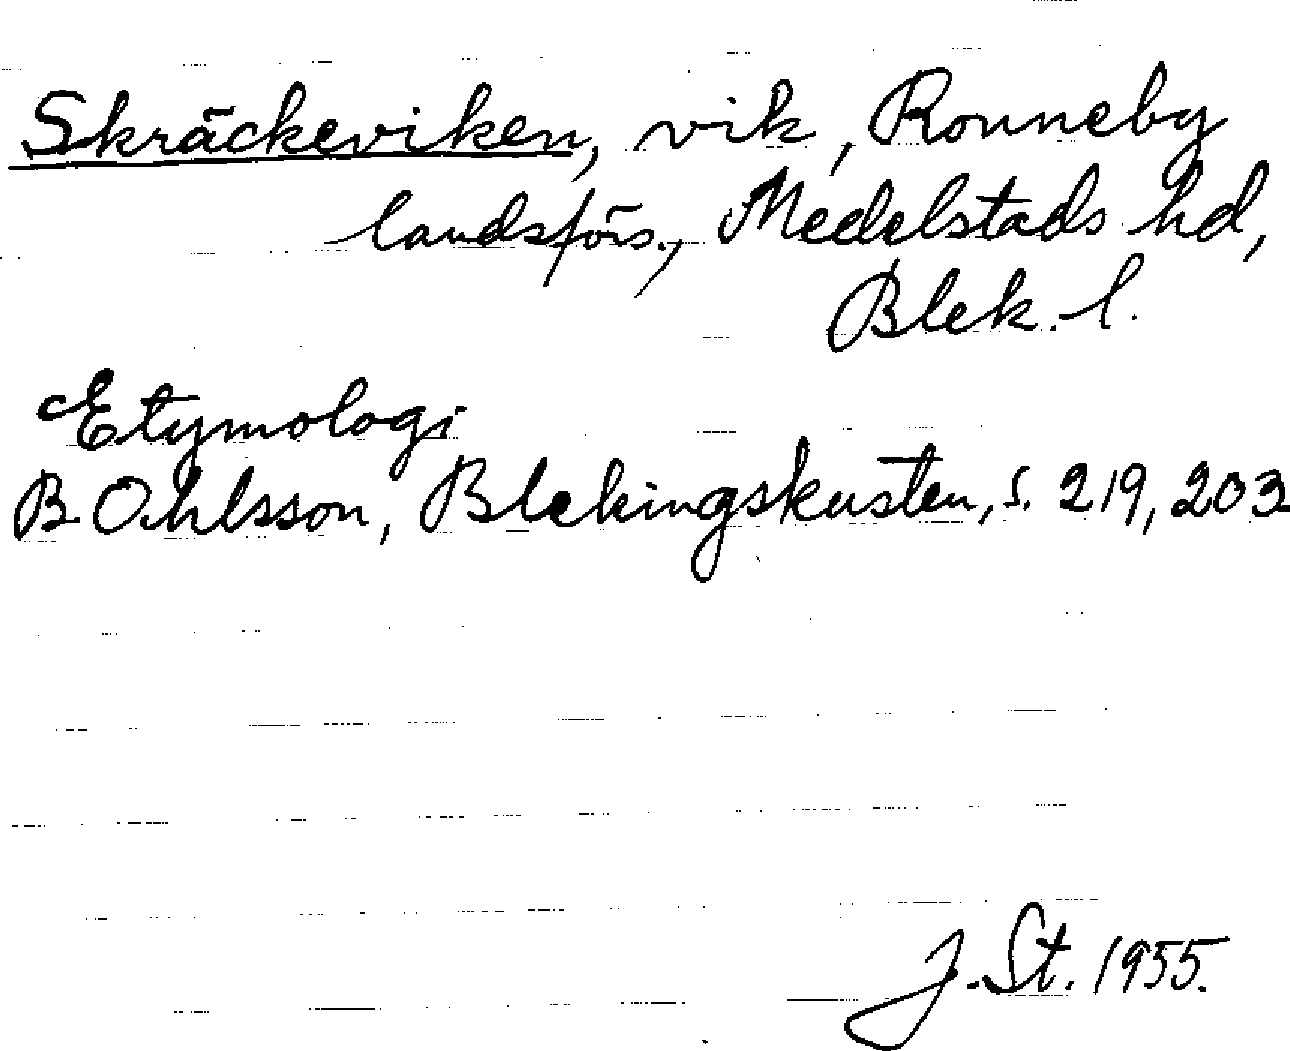 Skräckeviken, vik, Ronneby
landsförs., Medelstads hd,
Blek. l.
Etymologi
B. Ohlsson, Blekingskusten, s. 219, 203
J. St. 1955.